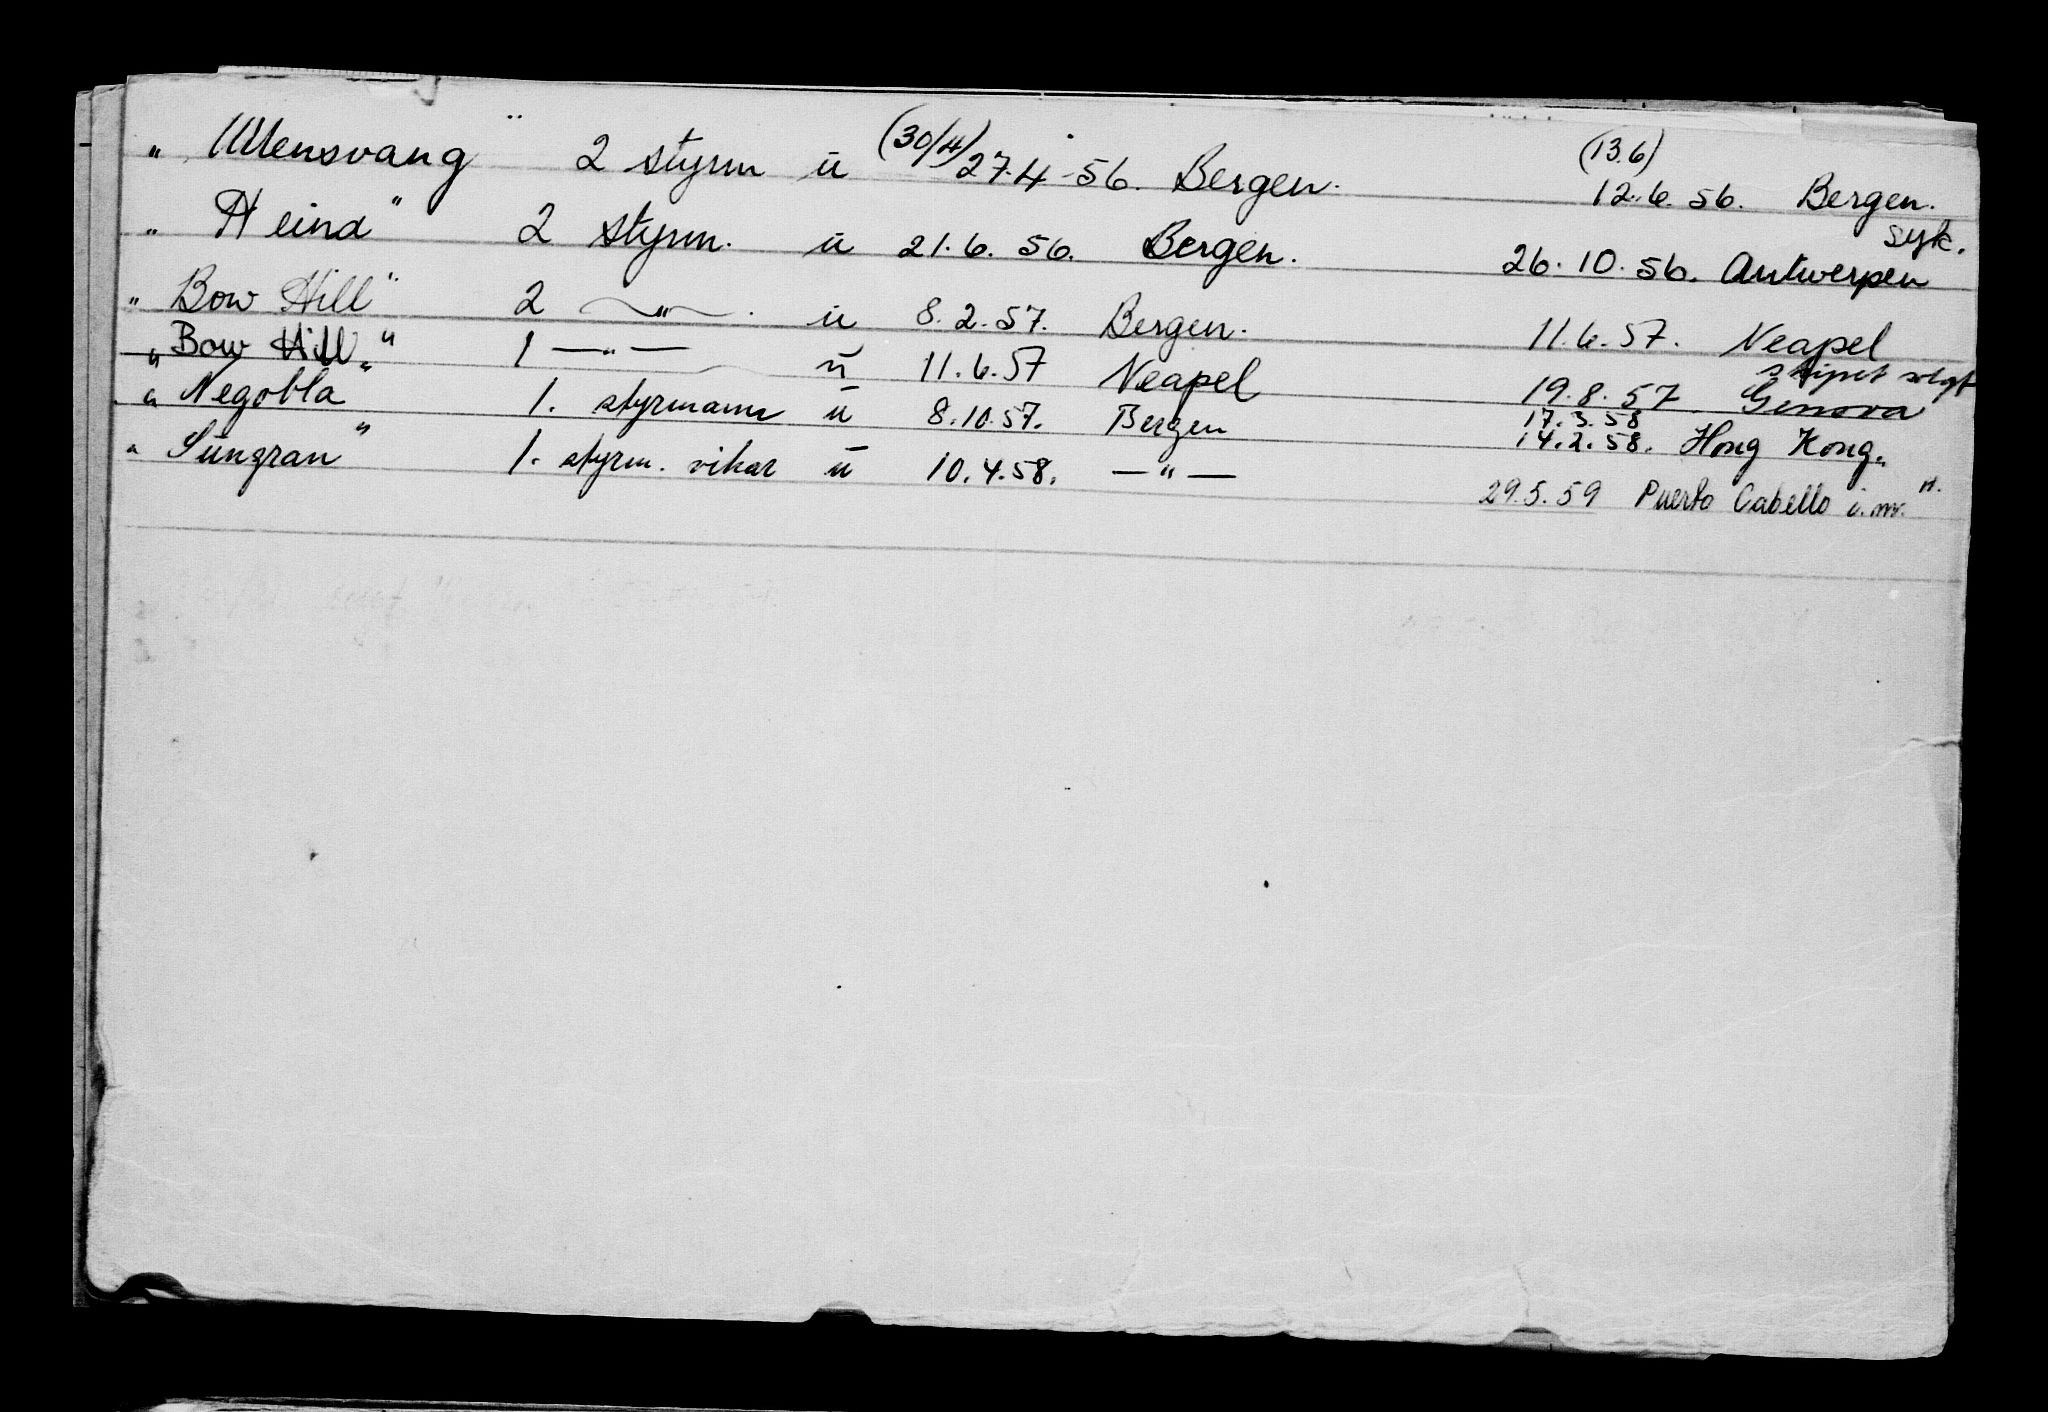 „ Ullensvang " 2 styrm u (30/4) 27.4-56. Bergen. (13.6) 12.6.56. Bergen.
„ Heind" 2 styrm. u 21.6.56. Bergen. 26.10.56. Antwerpen syk.
„ Bow Hill" 2 —"— . u 8.2.57. Bergen. 11.6.57. Neapel
„ Bow Hill" 1 —"— u 11.6.57 Neapel 19.8.57 Genova skipet solgt
„ Negobla" 1. styrmann u 8.10.57. Bergen 17.3.58 14.2.58. Hong Kong.
„ Sungran" 1. styrm. vikar u 10.4.58. —"— 29.5.59 Puerto Cabello